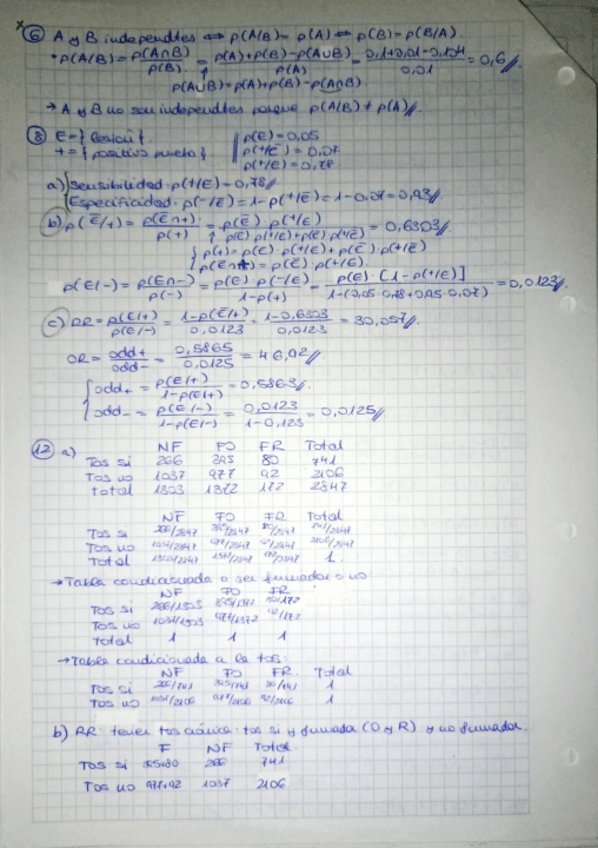 ⑥ A y B independtes ⇔ p(A/B) = p(A) ⇔ p(B) = p(B/A).
• p(A/B) = p(A∩B)/p(B) = p(A)+p(B)-p(A∪B)/p(A) = /0,01 = 0,6//.
p(A∪B) = p(A)+p(B)-p(A∩B).
→ A y B no son independtes porque p(A/B) ≠ p(A)//.
⑧ E = { lesión }. | p(E) = 0,05
+ = { positivo }. | p(+/Ē) = 0,07
p(+/E) = 0,78.
a) Sensibilidad: p(+/E) = 0,78//
Especificidad: p(-/Ē) = 1-p(+/Ē) = 1-0,07 = 0,93//
b) p(Ē/+) = p(Ē∩+)/p(+) = p(Ē)·p(+/Ē)/p(E)·p(+/E)+p(Ē)·p(+/Ē) = 0,6303//.
p(+) = p(E)·p(+/E)+p(Ē)·p(+/Ē)
p(Ē∩+) = p(Ē)·p(+/Ē).
p(E/-) = p(E∩-)/p(-) = p(E)·p(-/E)/1-p(+) = p(E)·[1-p(+/E)]/1-(0,05·0,78+0,95·0,07) = 0,0123//.
c) RR = p(E/+)/p(E/-) = 1-p(Ē/+)/0,0123 = 1-0,6303/0,0123 = 30,057//
OR = odd+/odd- = 0,5865/0,0125 = 46,92//
odd+ = p(E/+)/1-p(E/+) = 0,5865//.
odd- = p(E/-)/1-p(E/-) = 0,0123/1-0,123 = 0,0125//
⑫ a) NF FO FR Total
Tos si 266 395 80 741
Tos no 1037 977 92 2106
total 1303 1372 172 2847
NF FO FR Total
Tos si 266/2847 395/2847 80/2847 741/2847
Tos no 1037/2847 977/2847 92/2847 2106/2847
Total 1303/2847 1372/2847 172/2847 1
→ Tabla condicionada a ser fumador o no:
NF FO FR
Tos si 266/1303 395/1372 80/172
Tos no 1037/1303 977/1372 92/172
total 1 1 1
→ Tabla condicionada a la tos:
NF FO FR. Total
Tos si 266/741 395/741 80/741 1
Tos no 1037/2106 977/2106 92/2106 1
b) RR: tener tos crónica: tos si y fumada (O y R) y no fumador.
F NF Total.
Tos si 395+80 266 741
Tos no 977+92 1037 2106